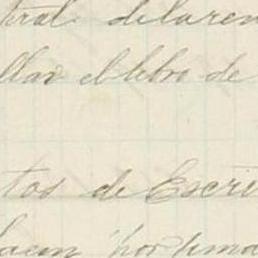 tral delaren
llar el lebro de
tos de Escri
hacen por